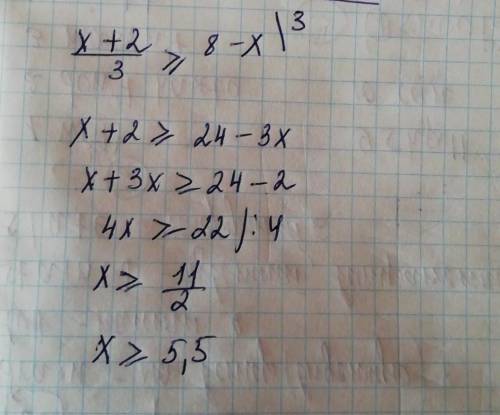 x + 2 / 3 ⩾ 8 - x \ 3
x + 2 ⩾ 24 - 3x
x + 3x ⩾ 24 - 2
4x ⩾ 22 / : 4
x ⩾ 11 / 2
x ⩾ 5,5